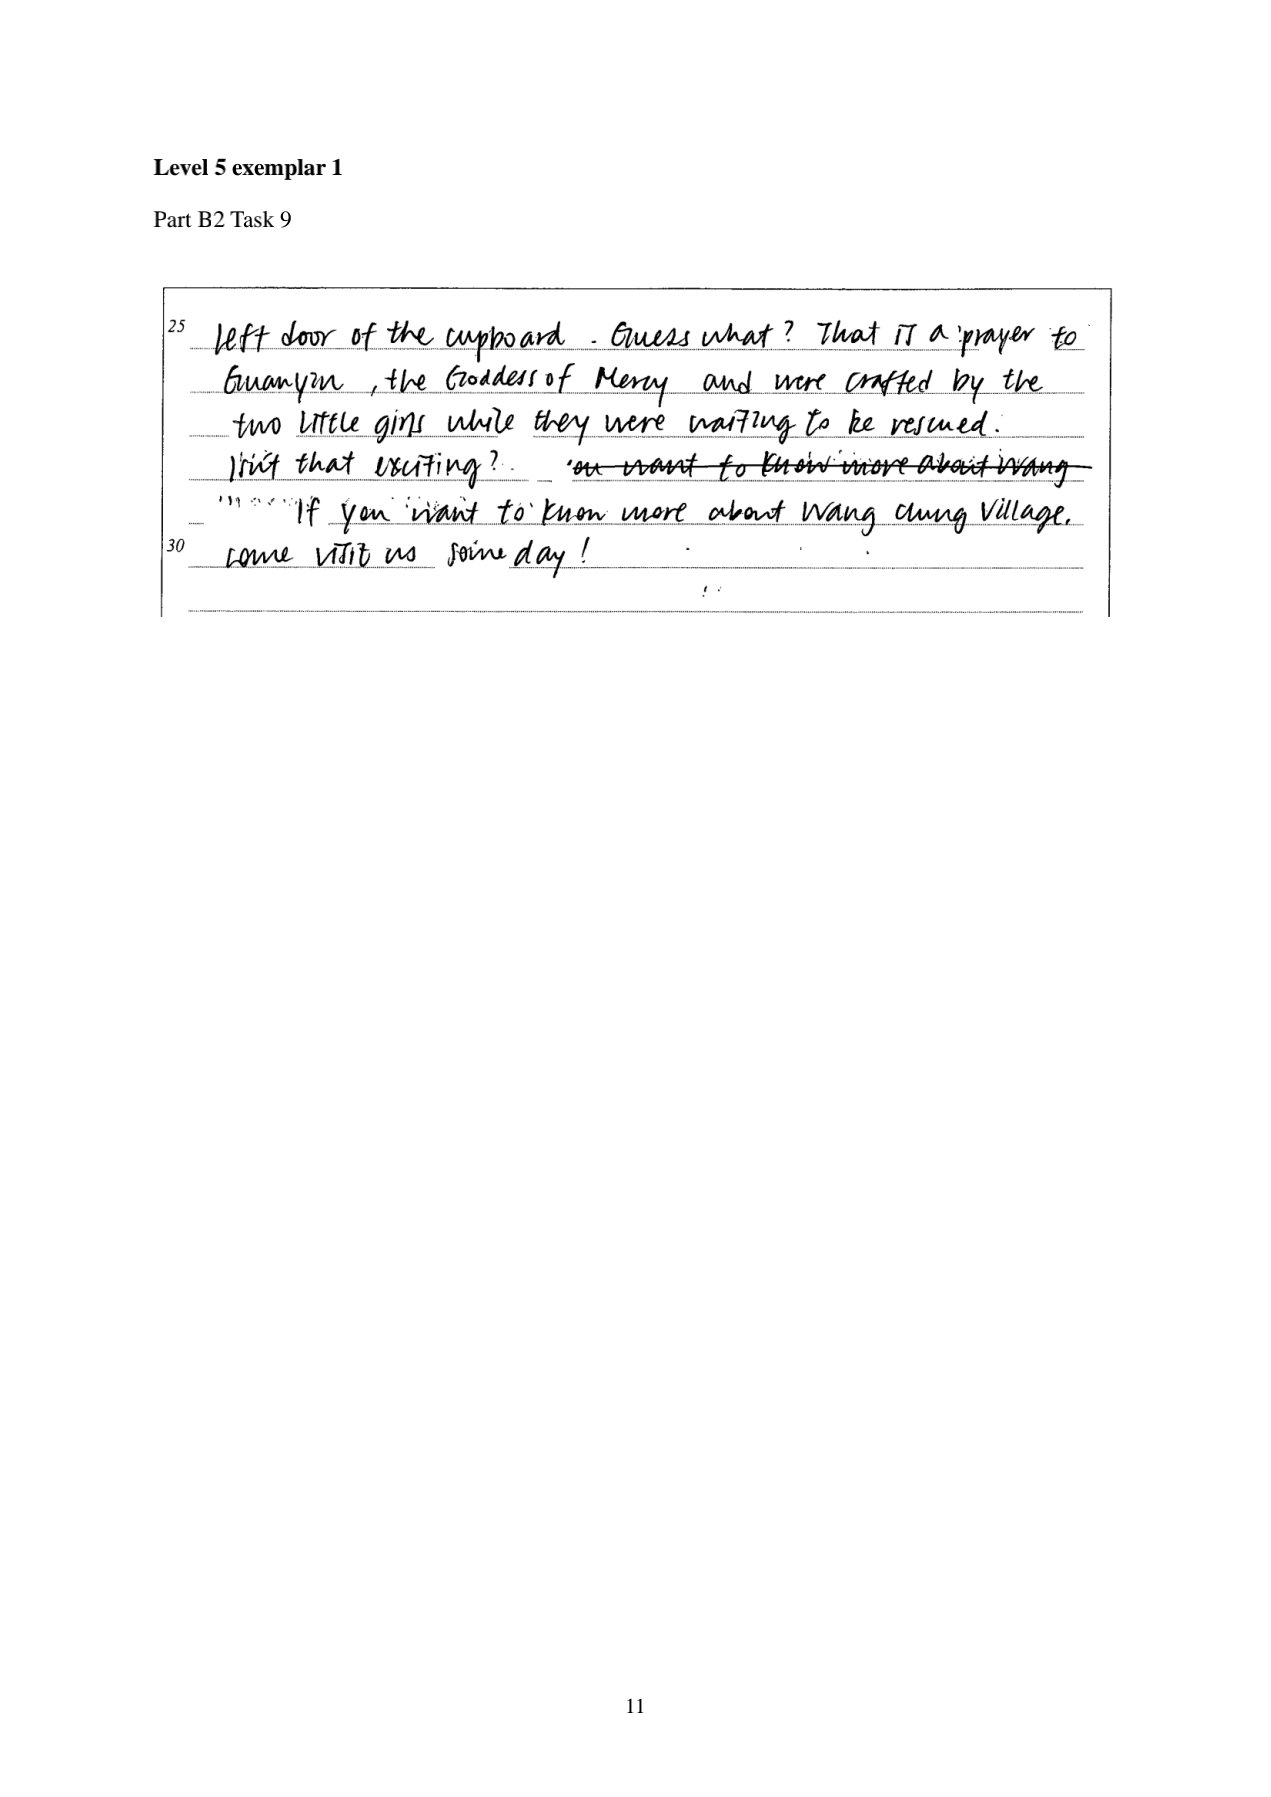 Level 5 exemplar 1
Part B2 Task 9
25 left door of the cupboard . Guess what? That is a prayer to
Guanyin , the Goddess of Mercy and were crafted by the
two little girls while they were waiting to be rescued.
Isn't that exciting? ou want to know more about Wang
If you want to know more about Wang Chung Village,
30 come visit us some day!
11